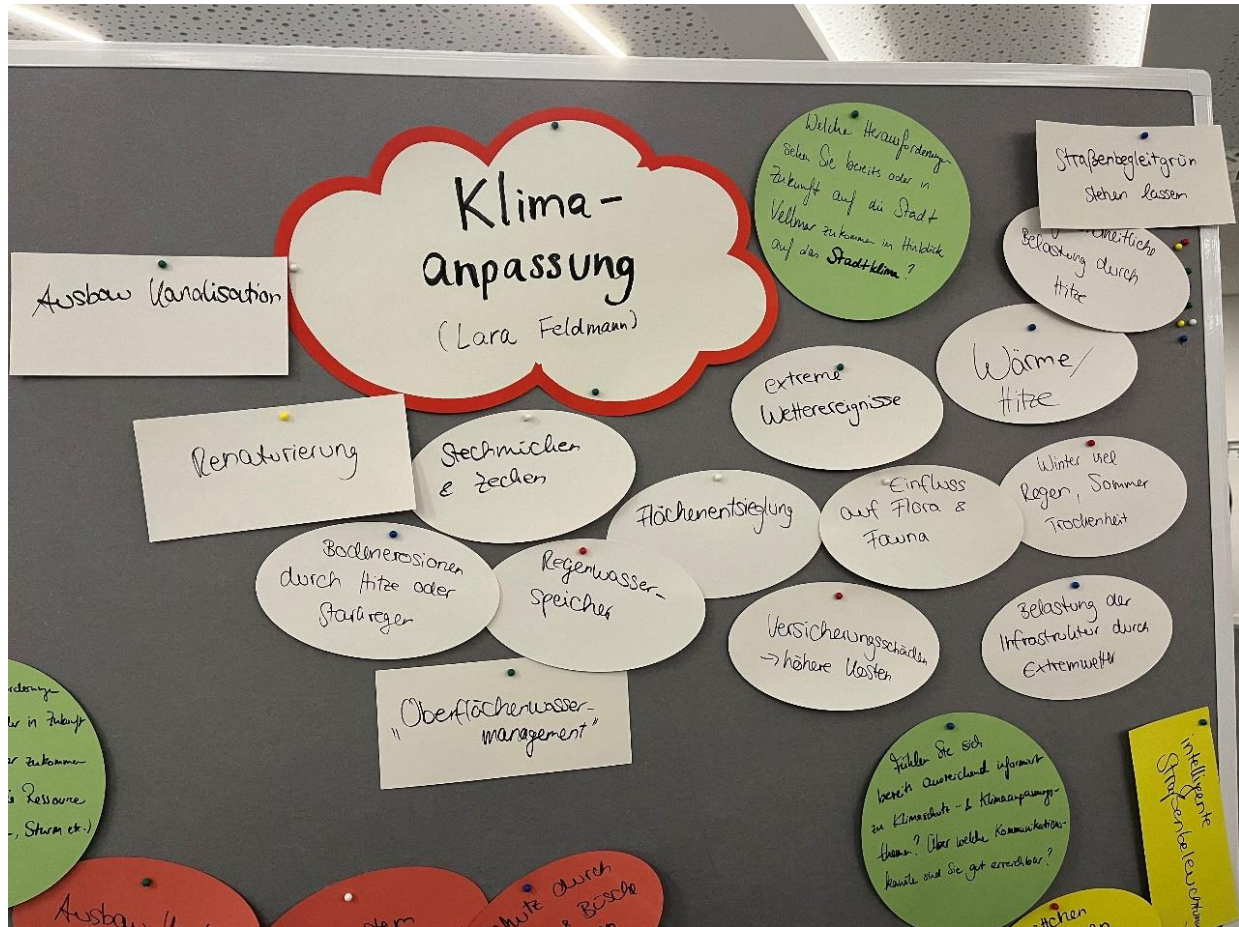 Klima-
anpassung
(Lara Feldmann)
Welche Herausforderungen
sehen Sie bereits oder in
Zukunft auf die Stadt
Vellmar zukommen im Hinblick
auf das Stadtklima?
Straßenbegleitgrün
stehen lassen
Belastung durch
Hitze
Ausbau Kanalisation
Wärme/
Hitze
extreme
Wetterereignisse
Renaturierung
Stechmücken
& Zecken
Flächenentsieglung
Einfluss
auf Flora &
Fauna
Winter viel
Regen, Sommer
Trockenheit
Bodenerosionen
durch Hitze oder
Starkregen
Regenwasser-
speicher
Versicherungsschäden
→ höhere Kosten
Belastung der
Infrastruktur durch
Extremwetter
"Oberflächenwasser-
management"
in Zukunft
zukommen
Ressource
, Sturm etc.)
Fühlen Sie sich
bereits ausreichend informiert
zu Klimaschutz- & Klimaanpassungs-
themen? Über welche Kommunikations-
kanäle sind Sie gut erreichbar?
intelligente
Straßenbeleuchtung
Ausbau
durch
Büsche